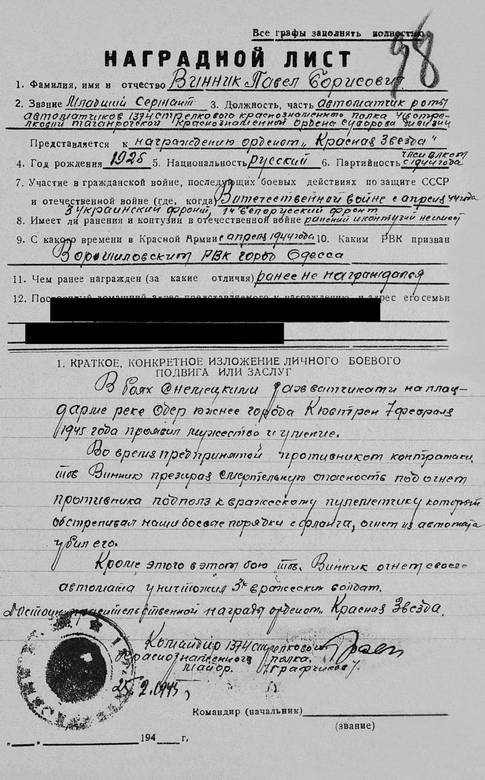 Все графы заполнять полностью
98
НАГРАДНОЙ ЛИСТ
1. Фамилия, имя и отчество Винник Павел Борисович
2. Звание Младший Сержант 3. Должность, часть автоматчик роты
автоматчиков 1374 стрелкового краснознаменного полка
Таганрогской Краснознаменной ордена Суворова дивизии
Представляется к награждению орденом "Красная Звезда"
4. Год рождения 1925 5. Национальность русский 6. Партийность член ВЛКСМ 1944 года
7. Участие в гражданской войне, последующих боевых действиях по защите СССР
и отечественной войне (где, когда) В отечественной войне с апреля 44 года
3 украинский фронт, 1й белорусский фронт
8. Имеет ли ранения и контузии в отечественной войне ранений и контузий не имеет
9. С какого времени в Красной Армии с апреля 1944 года 10. Каким РВК призван
Ворошиловским РВК город Одесса
11. Чем ранее награжден (за какие отличия) ранее не награждался
12. Постоянный домашний адрес представляемого к награждению и адрес его семьи
1. КРАТКОЕ, КОНКРЕТНОЕ ИЗЛОЖЕНИЕ ЛИЧНОГО БОЕВОГО
ПОДВИГА ИЛИ ЗАСЛУГ
В боях с немецкими захватчиками на плац-
дарме реке Одер южнее города Кюстрен 7 февраля
1945 года проявил мужество и умение.
Во время предпринятой противником контратаки
тов Винник презирая смертельную опасность под огнем
противника подполз к вражескому пулеметчику который
обстреливал наши боевые порядки с фланга, огнем из автомата
убил его.
Кроме этого в этом бою тов. Винник огнем своего
автомата уничтожил 3х вражеских солдат.
Достоин правительственной награды орденом Красная Звезда.
Командир 1374 стрелкового
Краснознаменного полка
Майор /Графчиков/.
25.2.1945г
Командир (начальник)
(звание)
194 г.